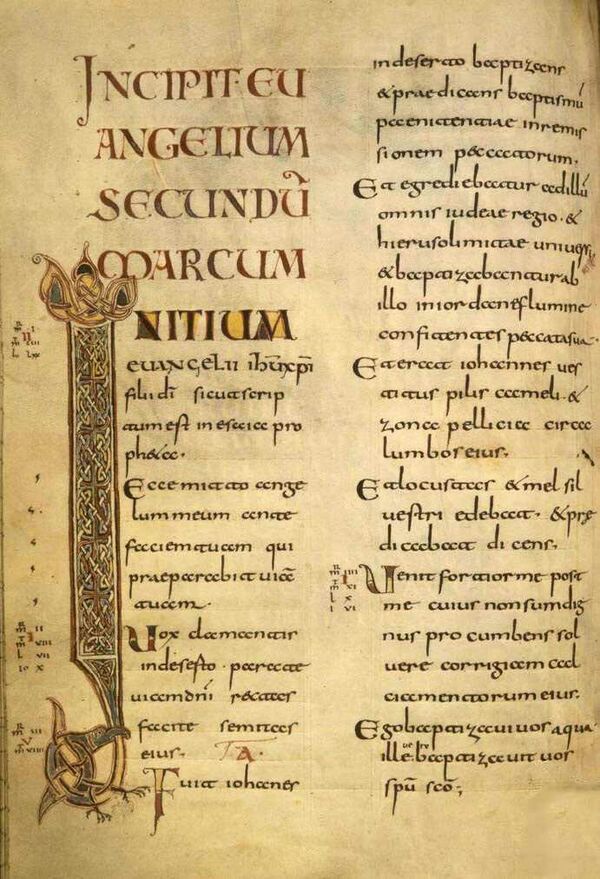 INCIPIT·EU
ANGELIUM
SECUNDŪ
MARCUM
INITIUM
euangelii ihū xpī
filii dī sicut scrip
tum est in esaia pro
pheta·
Ecce mitto ange
lum meum ante
faciem tuam qui
praeparabit uiā
tuam·
Uox clamantis
in deserto· parate
uiam dnī rectas
facite semitas
eius·
Fuit iohannes
in deserto baptizans
& praedicans baptismū
paenitentiae in remis
sionem peccatorum·
Et egrediebatur ad illū
omnis iudeae regio· &
hierusolimitae uniuersi
& baptizabantur ab
illo in iordane flumine
confitentes peccata sua·
Et erat iohannes ues
titus pilis cameli· &
zona pellicia circa
lumbos eius·
Et locustas & mel sil
uestri edebat· & prę
dicabat dicens·
Uenit fortior me post
me cuius non sum dig
nus procumbens sol
uere corrigiam cal
ciamentorum eius·
Ego baptizaui uos aqua·
ille· baptizauit uos
spū scō·